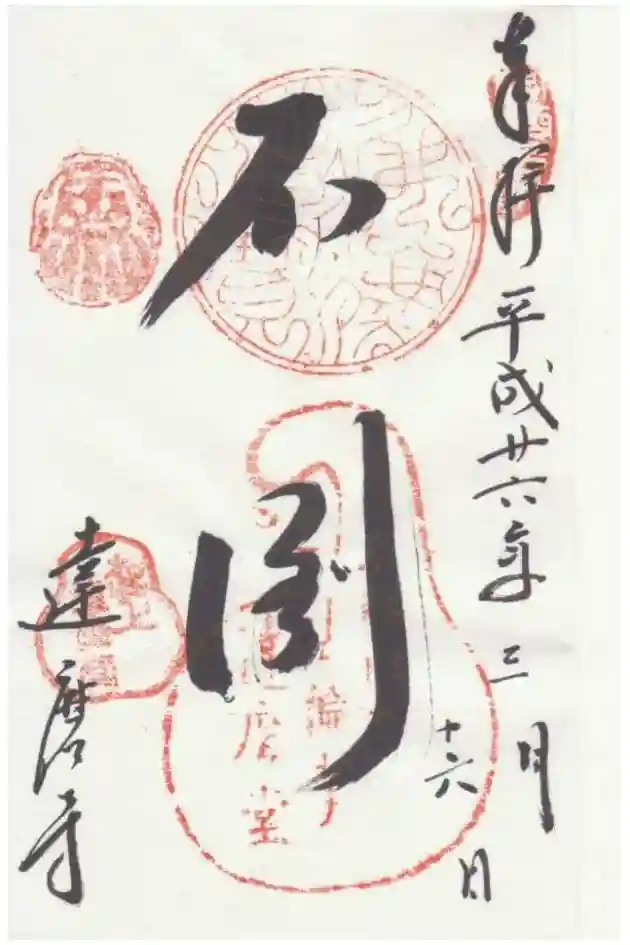 奉拝
平成廿六年三月
十六日
不倒
達磨寺